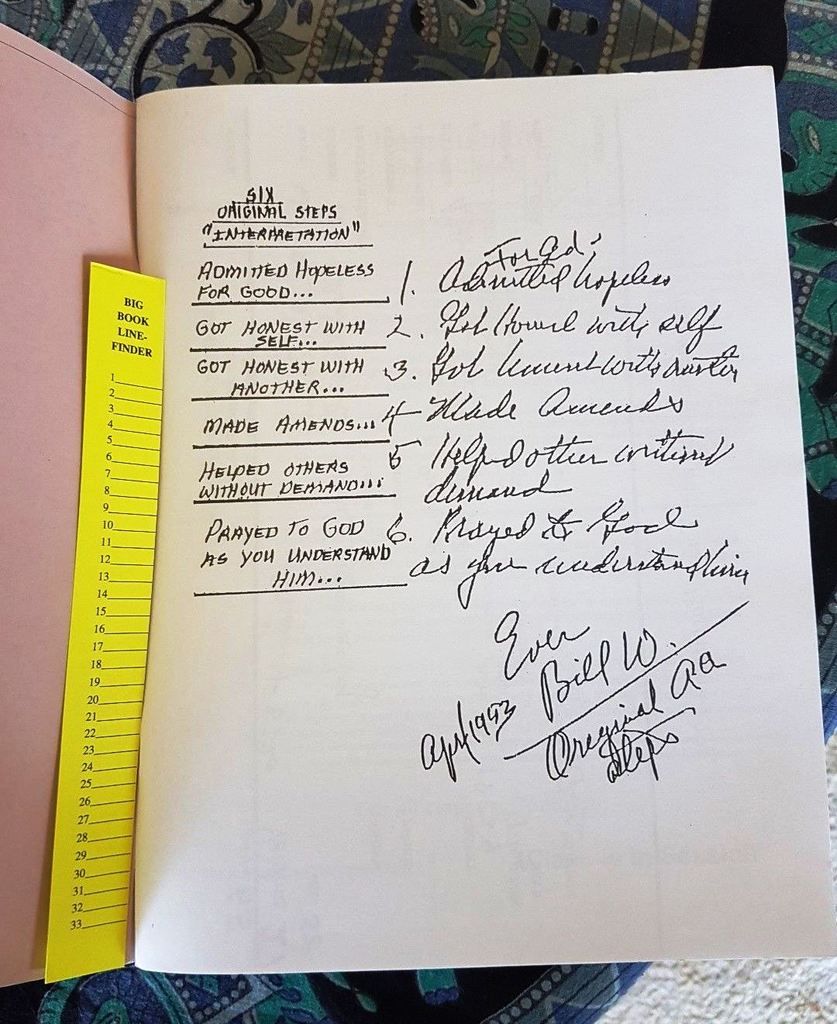 SIX
ORIGINAL STEPS
"INTERPRETATION"
ADMITTED HOPELESS
FOR GOOD...
GOT HONEST WITH
SELF...
GOT HONEST WITH
ANOTHER...
MADE AMENDS...
HELPED OTHERS
WITHOUT DEMAND...
PRAYED TO GOD
AS YOU UNDERSTAND
HIM...
For
1. Admitted hopeless
2. Got Honest with self
3. Got honest with another
4 Made Amends
5 Helped other without
demand
6. Prayed to God
as you understand him
Ever
Bill W.
Apr/1953
Original AA
Steps
BIG
BOOK
LINE-
FINDER
1
2
3
4
5
6
7
8
9
10
11
12
13
14
15
16
17
18
19
20
21
22
23
24
25
26
27
28
29
30
31
32
33